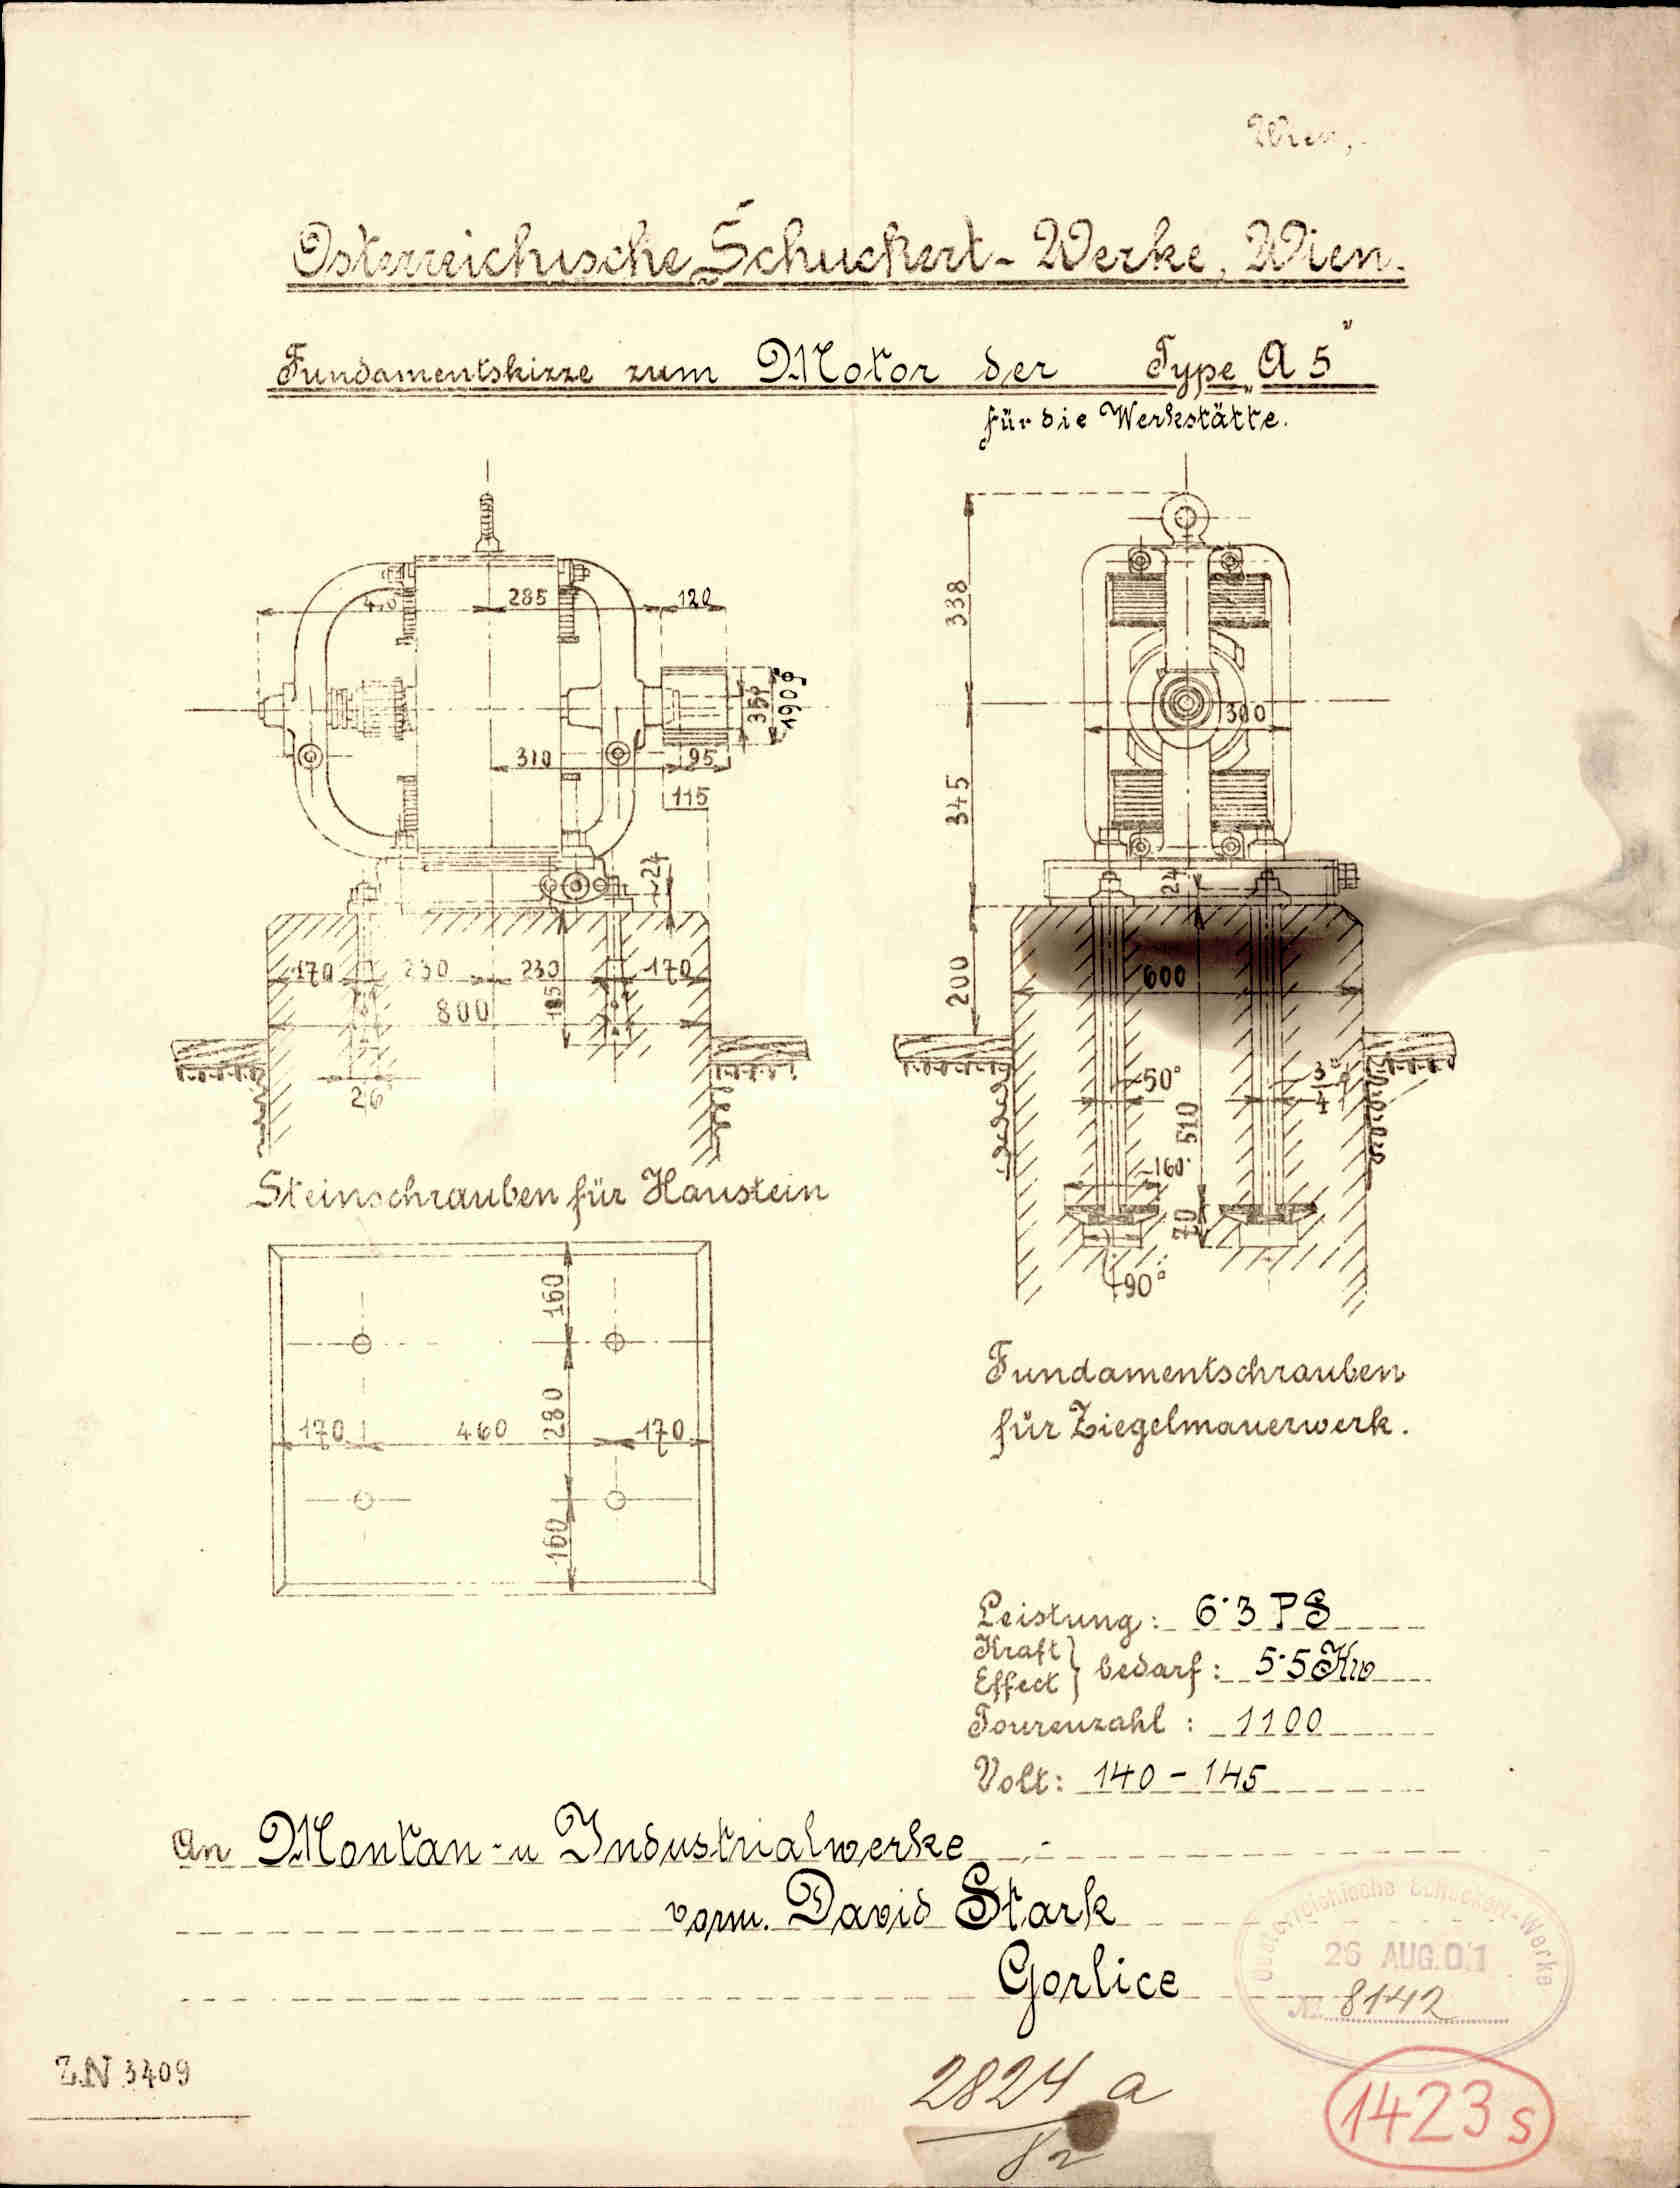 Wien,
Österreichische Schuckert-Werke, Wien.
Fundamentskizze zum Motor der Type „A 5"
für die Werkstätte.
285
120
35
190
310
95
115
24
170
230
230
170
800
26
338
345
200
300
24
600
50
3/4"
510
160
70
90
Steinschrauben für Haustein
160
170
460
280
170
160
Fundamentschrauben
für Ziegelmauerwerk.
Leistung: 6·3 PS
Kraft
Effect } bedarf: 5·5 Kw
Tourenzahl: 1100
Volt: 140-145
An Montan- u Industrialwerke
vorm. David Stark
Gorlice
Oesterreichische Schuckert-Werke
26 AUG.01
No. 8142
Z.N 3409
2824 a
1423 s